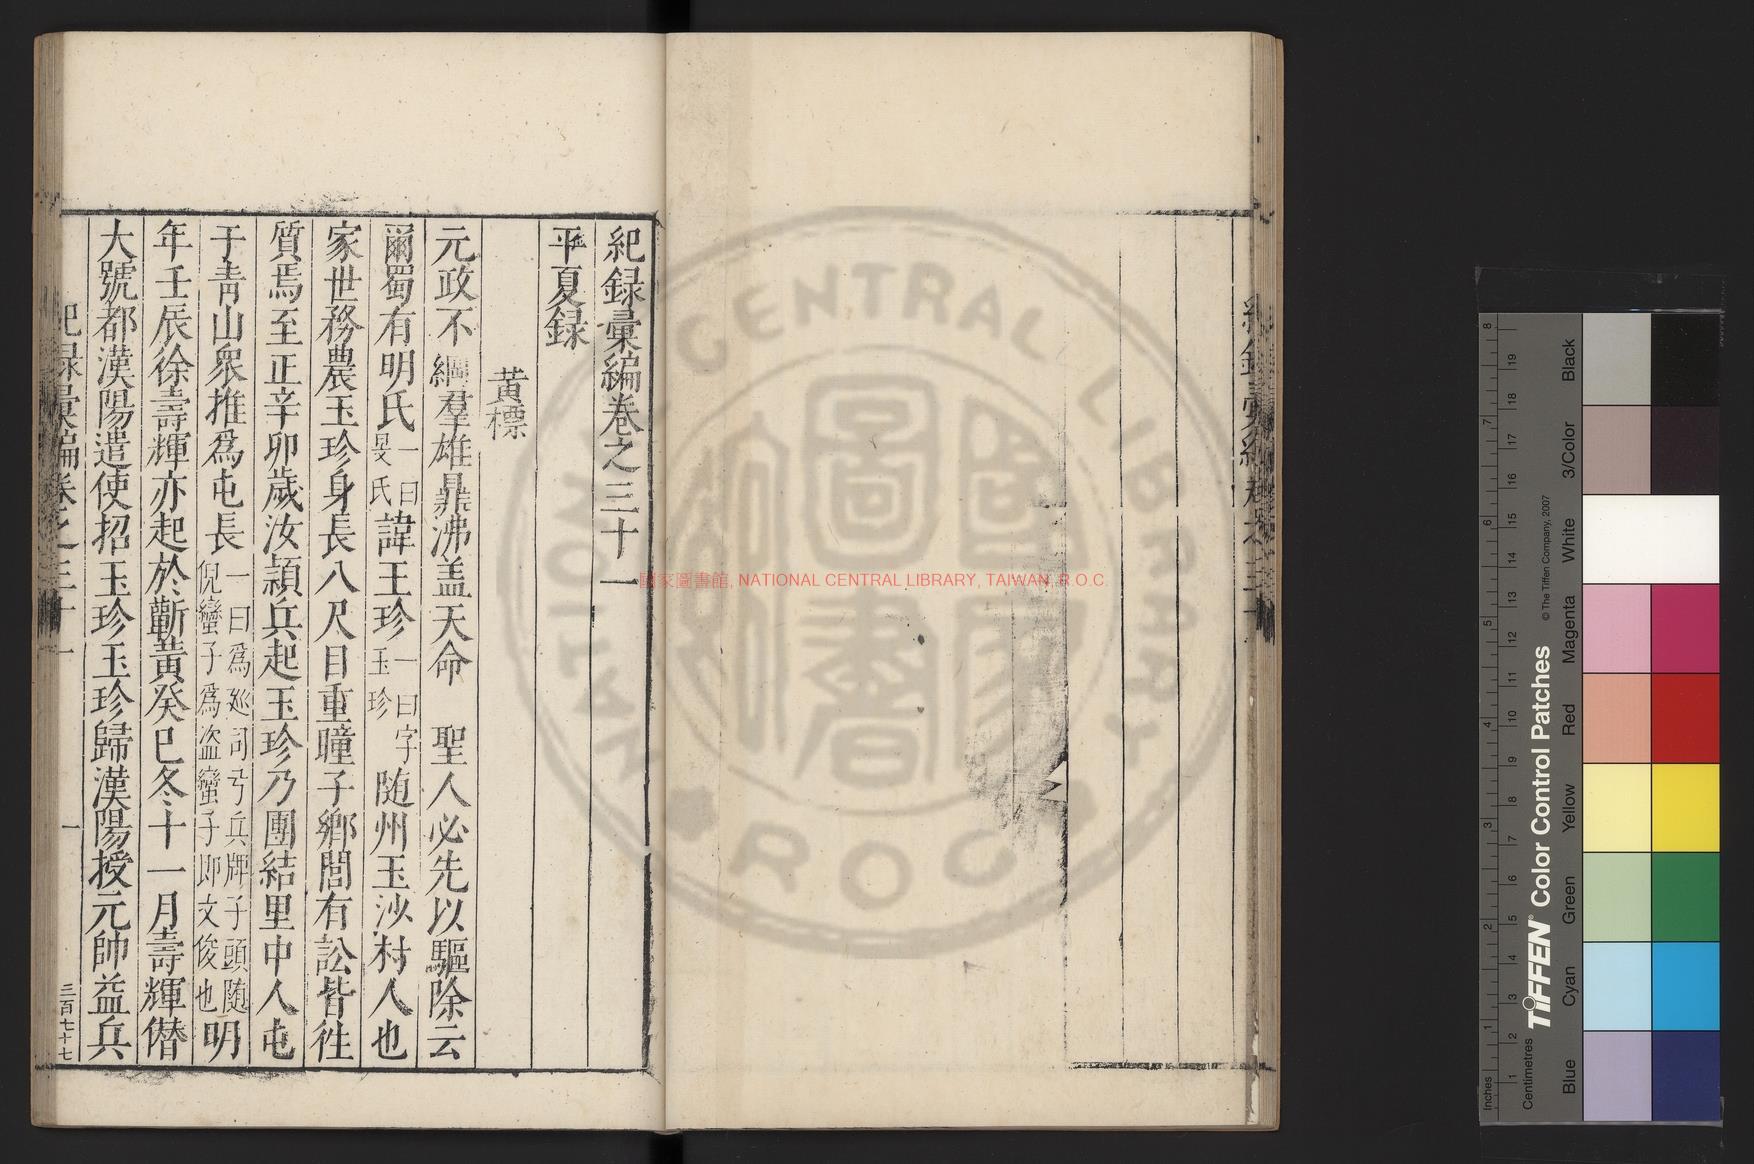 紀録彙編卷之三十一
平夏録
黄標
元政不綱羣雄鼎沸盖天命　聖人必先以驅除云
爾蜀有明氏一曰旻氏諱玉珍一曰字玉珍随州玉沙村人也
家世務農玉珍身長八尺目重瞳子鄉閭有訟皆徃
質焉至正辛卯歲汝潁兵起玉珍乃團結里中人屯
于青山衆推爲屯長一曰爲廵司弓兵牌子頭随倪蠻子爲盗蠻子即文俊也明
年壬辰徐壽輝亦起於蘄黄癸巳冬十一月壽輝僣
大號都漢陽遣使招玉珍玉珍歸漢陽授元帥益兵
紀録彙編卷之三十一
一
三百七十七
國家圖書館, NATIONAL CENTRAL LIBRARY, TAIWAN, R.O.C.
NATIONAL CENTRAL LIBRARY
R O C
國家圖書館
TIFFEN® Color Control Patches
© The Tiffen Company, 2007
Inches
1 2 3 4 5 6 7 8
Centimetres
1 2 3 4 5 6 7 8 9 10 11 12 13 14 15 16 17 18 19
Blue
Cyan
Green
Yellow
Red
Magenta
White
3/Color
Black